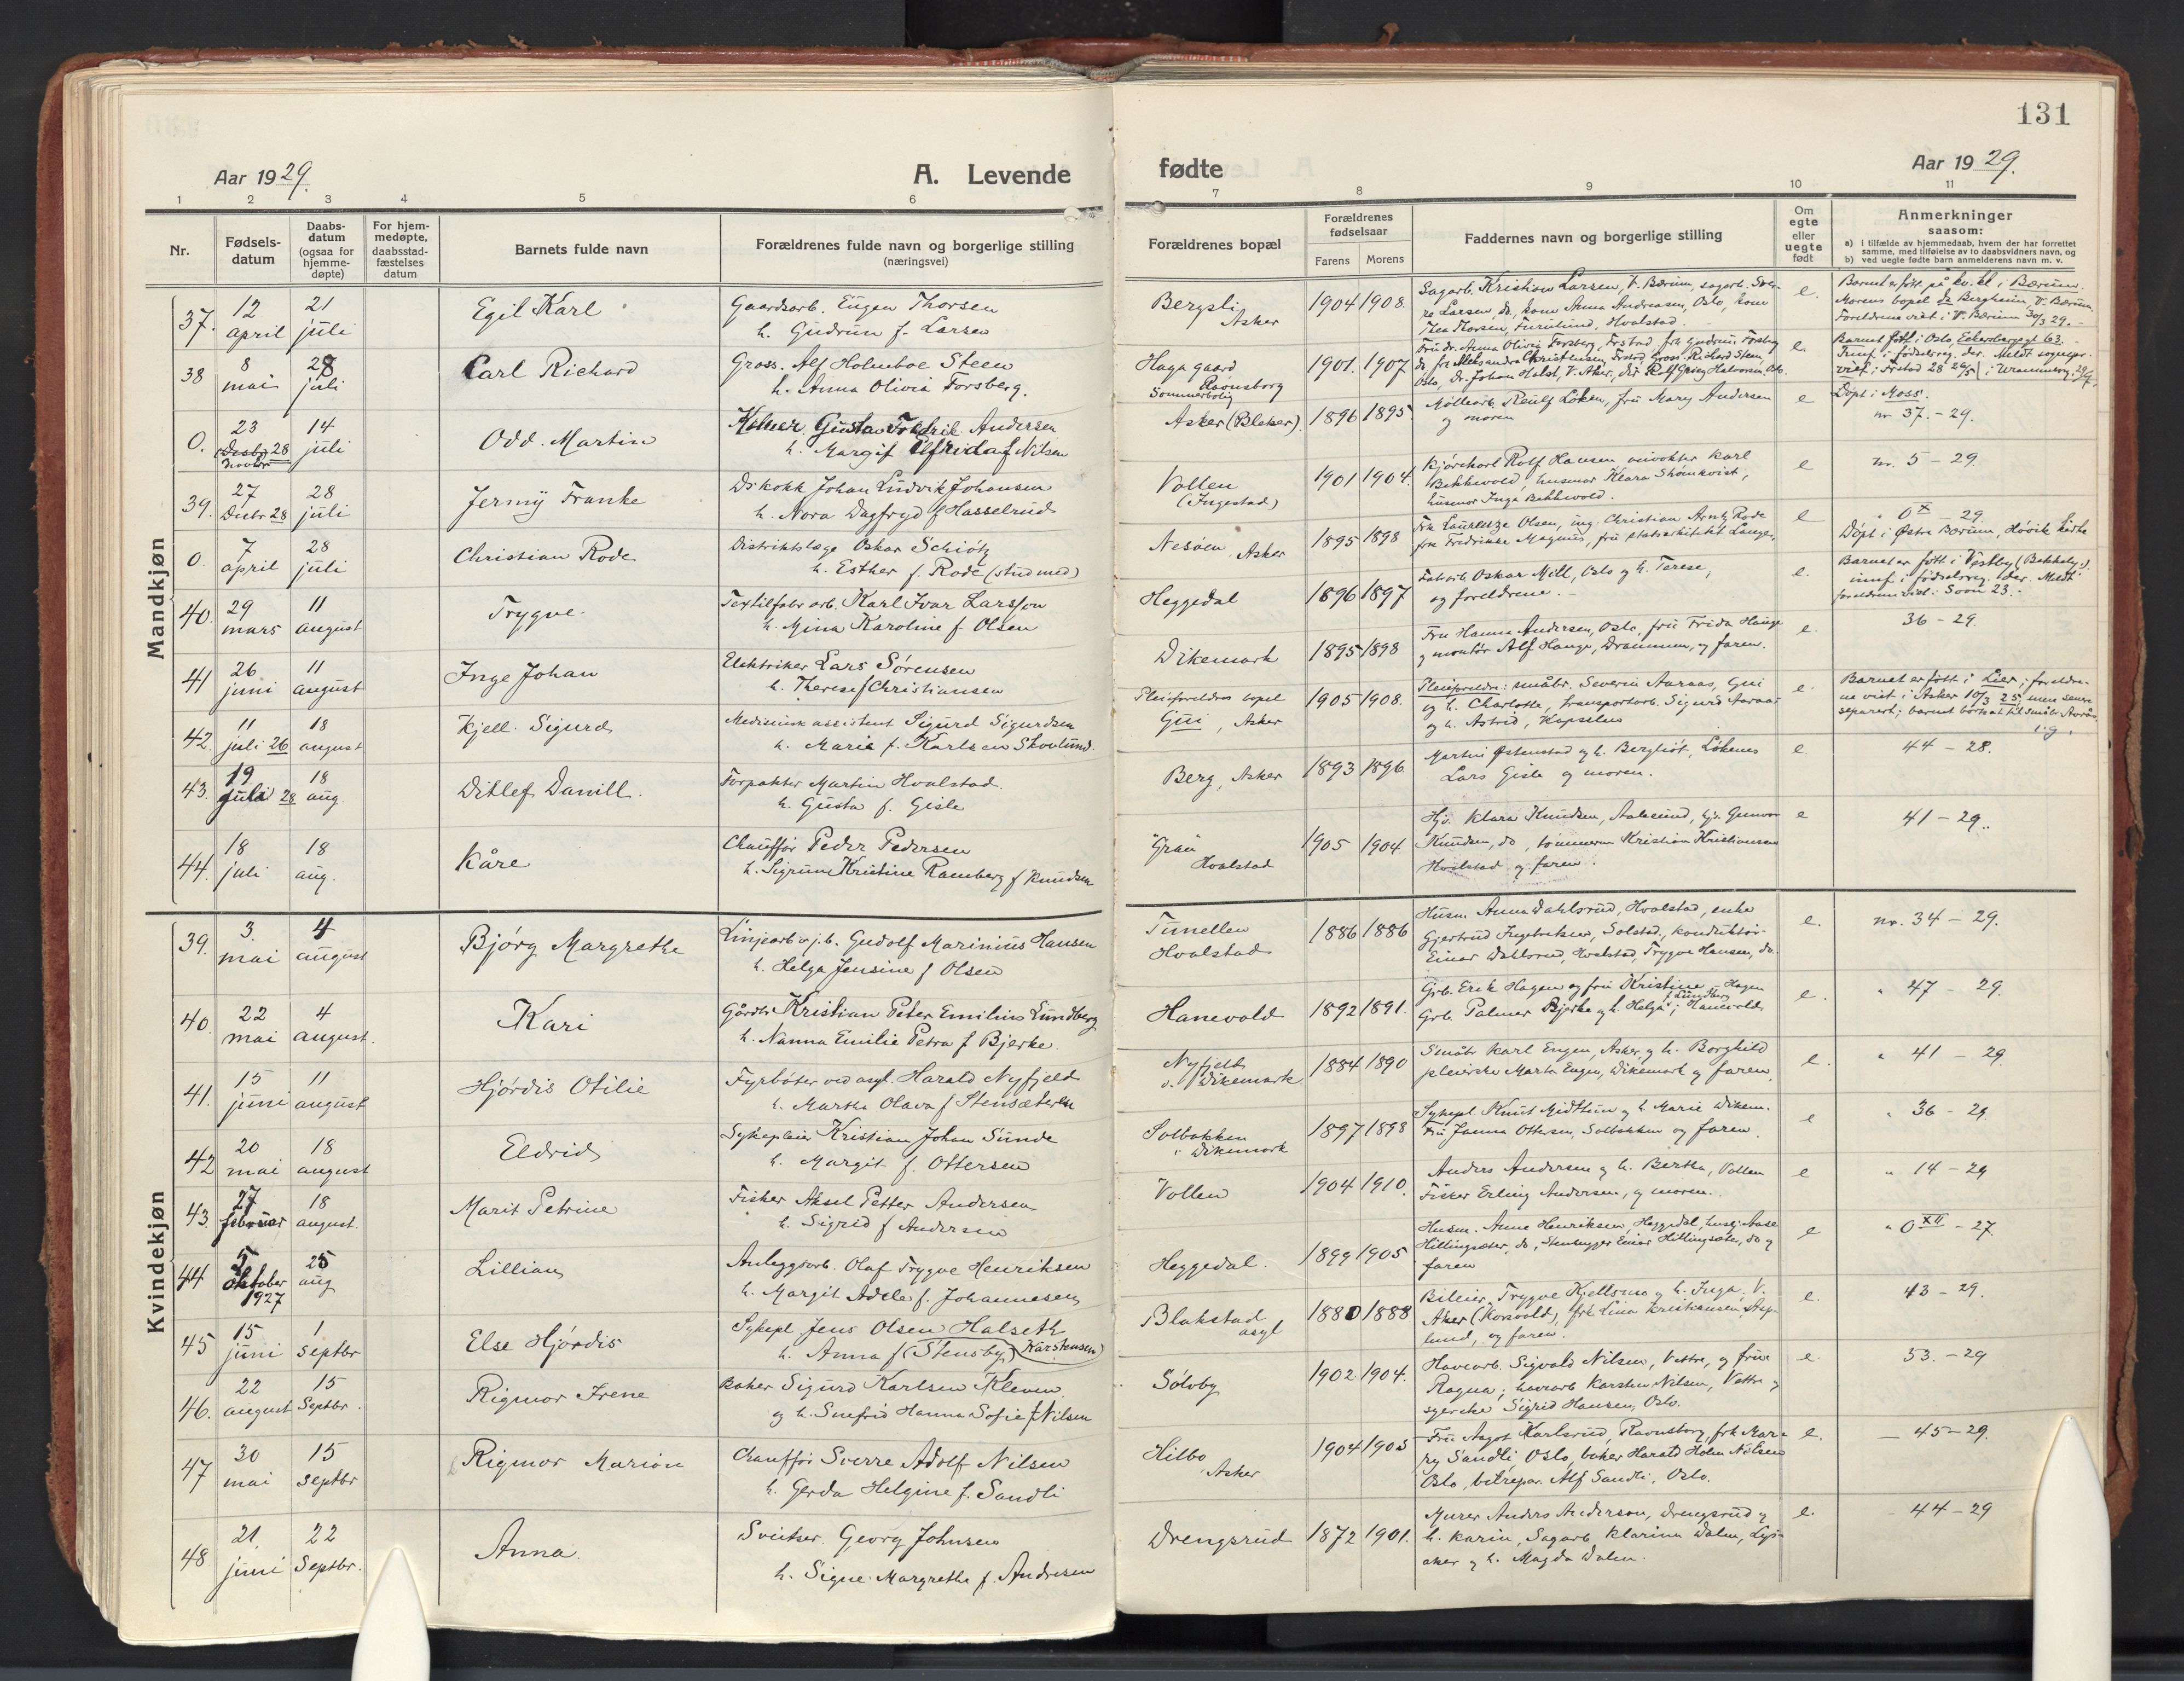 131
Aar 1929.
A. Levende
fødte
Aar 1929.
1 2 3 4 5 6 7 8 9 10 11
Nr.
Fødselsdatum
Daabsdatum (ogsaa for hjemmedøpte)
For hjemmedøpte, daabsstadfæstelses datum
Barnets fulde navn
Forældrenes fulde navn og borgerlige stilling
(næringsvei)
Forældrenes bopæl
Forældrenes fødselsaar
Farens
Morens
Faddernes navn og borgerlige stilling
Om egte eller uegte født
Anmerkninger
saasom:
a) i tilfælde av hjemmedaab, hvem der har forrettet samme, med tilføielse av to daabsvidners navn, og
b) ved uegte fødte barn anmelderens navn m. v.
Mandkjøn
37. 12 april 21 juli Egil Karl
Gaardsarb. Eugen Thorsen
h. Gudrun f. Larsen
Bergsli Asker 1904 1908.
Sagarb. Kristian Larsen, V. Bærum, sagarb. Sver-
re Larsen, do, kone Anna Andreasen, Oslo, kone
Thea Thorsen, Furulund, Hvalstad.
e.
Barnet er født på kv. kl i Bærum.
Morens bopel Bergheim, V. Bærum.
Foreldrene viet i V. Bærum 30/3 29.
38 8 mai 28 juli Carl Richard
Gross. Alf Holmboe Steen
h. Anna Olivia Forsberg.
Haga gaard
Ravnsborg
Sommerbolig
1901. 1907
e.
Barnet født i Oslo, Eckersbergsgt 63.
0. 23 Novbr 28 14 juli Odd. Martin
Kelner Gustav Fredrik Andersen
h. Margit Elfrida f Nilsen
Asker (Bleker). 1896 1895
Møllearb. Reulf Løken, fru Mary Andersen
og moren
e
Døpt i Moss.
nr 37. - 29.
39. 27 Decbr 28 28 juli Jermy Franke
Johan Ludvik Johansen
h. Nora Dagfryd f Hasselrud
Vollen
(Ingestad)
1901 1904.
e
nr. 5 - 29.
0. 7 april 28 juli Christian Rode
Distriktslæge Oskar Schiøtz
h. Esther f. Rode (stud med)
Nesøen, Asker 1895 1898
e
0 x 29
Døpt i Østre Bærum, Høvik kirke
40. 29 mars 11 august Trygve.
Textilfabr arb. Karl Ivar Larsson
h. Mina Karoline f. Olsen
Heggedal 1896 1897
Fabarb Oskar Mill, Oslo og h. Terese,
og foreldrene.
e.
Barnet er født i Vestby
innf. i fødselsreg. der. Meldt
foreldrene viet i Soon 23.
41 26 juni 11 august Inge Johan
Elektriker Lars Sørensen
h. Therese f Christiansen
Dikemark 1895 1898
Fru Hanna Andersen, Oslo, fru Frida Hauge
og montør Alf Hauge, Drammen, og faren.
e.
36 - 29.
42. 11 juli 26 18 august Kjell. Sigurd
Medicinsk assistent Sigurd Sigurdsen
h. Marie f. Karlsen Skovlund.
Pleieforeldres bopel
Gui, Asker
1905 1908.
Pleieforeldre: småbr. Severin Aaraas, Gui
og h. Charlotte, transportarb. Sigurd Aaraas
og h. Astrid, Kapselen
e.
Barnet er født i Lier; foreldre-
ne viet i Asker 10/3 25, men senere
separert; barnet bortsat til småbr. Aarås.
43. 19 juli 28 18 aug. Ditlef Daniell.
Forpakter Martin Hvalstad.
h. Gusta f. Gisle
Berg, Asker 1893 1896.
Martin Østenstad og h. Bergliot, Løkenes
Lars Gisle og moren.
e
44 - 28.
44. 18 juli 18 aug. Kåre
Chauffør Peder Pedersen
h. Sigrun Kristine Ramberg f Knudsen
Hvalstad 1905 1904.
Hj. Klara Knudsen, Aalesund, hj. Gunvor
Knudsen, do, tømmerm Kristian Kristiansen
Hvalstad og faren.
e
41 - 29.
Kvindekjøn
39. 3. mai 4 august Bjørg Margrethe
Linjearb v. j. b. Gudolf Marinius Hansen
h. Helga Jensine f Olsen
Tunellen
Hvalstad
1886 1886
Husm. Anna Dahlsrud, Hvalstad, enke
Gjertrud Ingebretsen, Solstad, konduktør
Einar Dahlsrud, Hvalstad, Trygve Hansen, do.
e.
nr. 34 - 29.
40. 22 mai 4 august. Kari
Gårdbr Kristian Peter Emilius Lundberg
h. Nanna Emilie Petra f Bjerke.
Hanevold 1892 1891.
Grb. Erik Hagen og fru Kristine Hagen
f. Lundberg
Grb. Palmer Bjerke og h. Helga; Hanevold
e.
" 47 - 29.
41. 15 juni 11 august Hjørdis Otilie
Fyrbøter ved asyl. Harald Nyfjeld
h. Martha Olava f Stensæteren
Nyfjeld
v. Dikemark
1884 1890
Småbr Karl Engen, Asker, og h. Borghild
pleierske Marta Engen, Dikemark og faren
e.
" 41 - 29
42 20 mai 18 august Eldrid
Sykepleier Kristian Johan Sunde
h. Margit f. Ottersen
Solbakken
Dikemark
1897 1898
Sykepl. Knut Midttun og h Marie Dikem.
Fru Janna Ottersen, Solbakken og faren.
e
" 36 - 29
43. 27 februar 18 august. Marit Petrine
Fisker Aksel Petter Andersen
h. Sigrid f Andersen
Vollen 1904 1910.
Anders Andersen og h. Bertha, Vollen
Fisker Erling Andersen, og moren.
e
" 14 - 29
44 5 oktober 1927 25 aug Lillian
Anleggsarb. Olaf Trygve Henriksen
h. Margit Adele f. Johannesen
Heggedal. 1899 1905
Husm. Anne Henriksen, Heggedal, husj. Aase
Hillingsæter, do, Stenhugger Einar Hillingsæter, do og
faren
e
" 0 XII - 27.
45 15 juni 1 Septbr Else Hjørdis
Sykepl Jens Olsen Halseth
h. Anna f (Stensby) Karstensen)
Blakstad
asyl
1880 1888
Bileier, Trygve Kjellsmo og h. Inga, V.
Aker (Korsvold), frk Lina Kristiansen, Asp-
lund, og faren.
e.
43 - 29.
46. 22 august 15 Septbr. Rigmor Irene
Baker Sigurd Karlsen Kleven
og h. Snefrid Hanna Sofie f Nilsen
Sølvby 1902 1904.
Havearb. Sigvald Nilsen, Vettre, og frue
Ragna; havearb Karsten Nilsen, Vettre og
syerske Sigrid Hansen, Oslo.
e.
53. - 29
47 30 mai 15 Septbr Rigmor Marion
Chauffør Sverre Adolf Nilsen
h. Gerda Helgine f. Sandli
Hilbo
Asker
1904 1905
Fru Aagot Karlsrud, Ravnsborg, frk Mar-
ry Sandli, Oslo, baker Harald Holm Nilsen
Oslo, bilrepar. Alf Sandli, Oslo.
e.
— 45 - 29.
48 21. juni 22 Septbr. Anna.
Sveitser. Georg Johnsen
h. Signe Margrethe f. Andresen
Drengsrud 1872 1901.
Murer Anders Andersen, Drengsrud og
h. Karin, Sagarb Klarinn Dalen, Lys-
aker og h. Magda Dalen.
e.
- 44 - 29